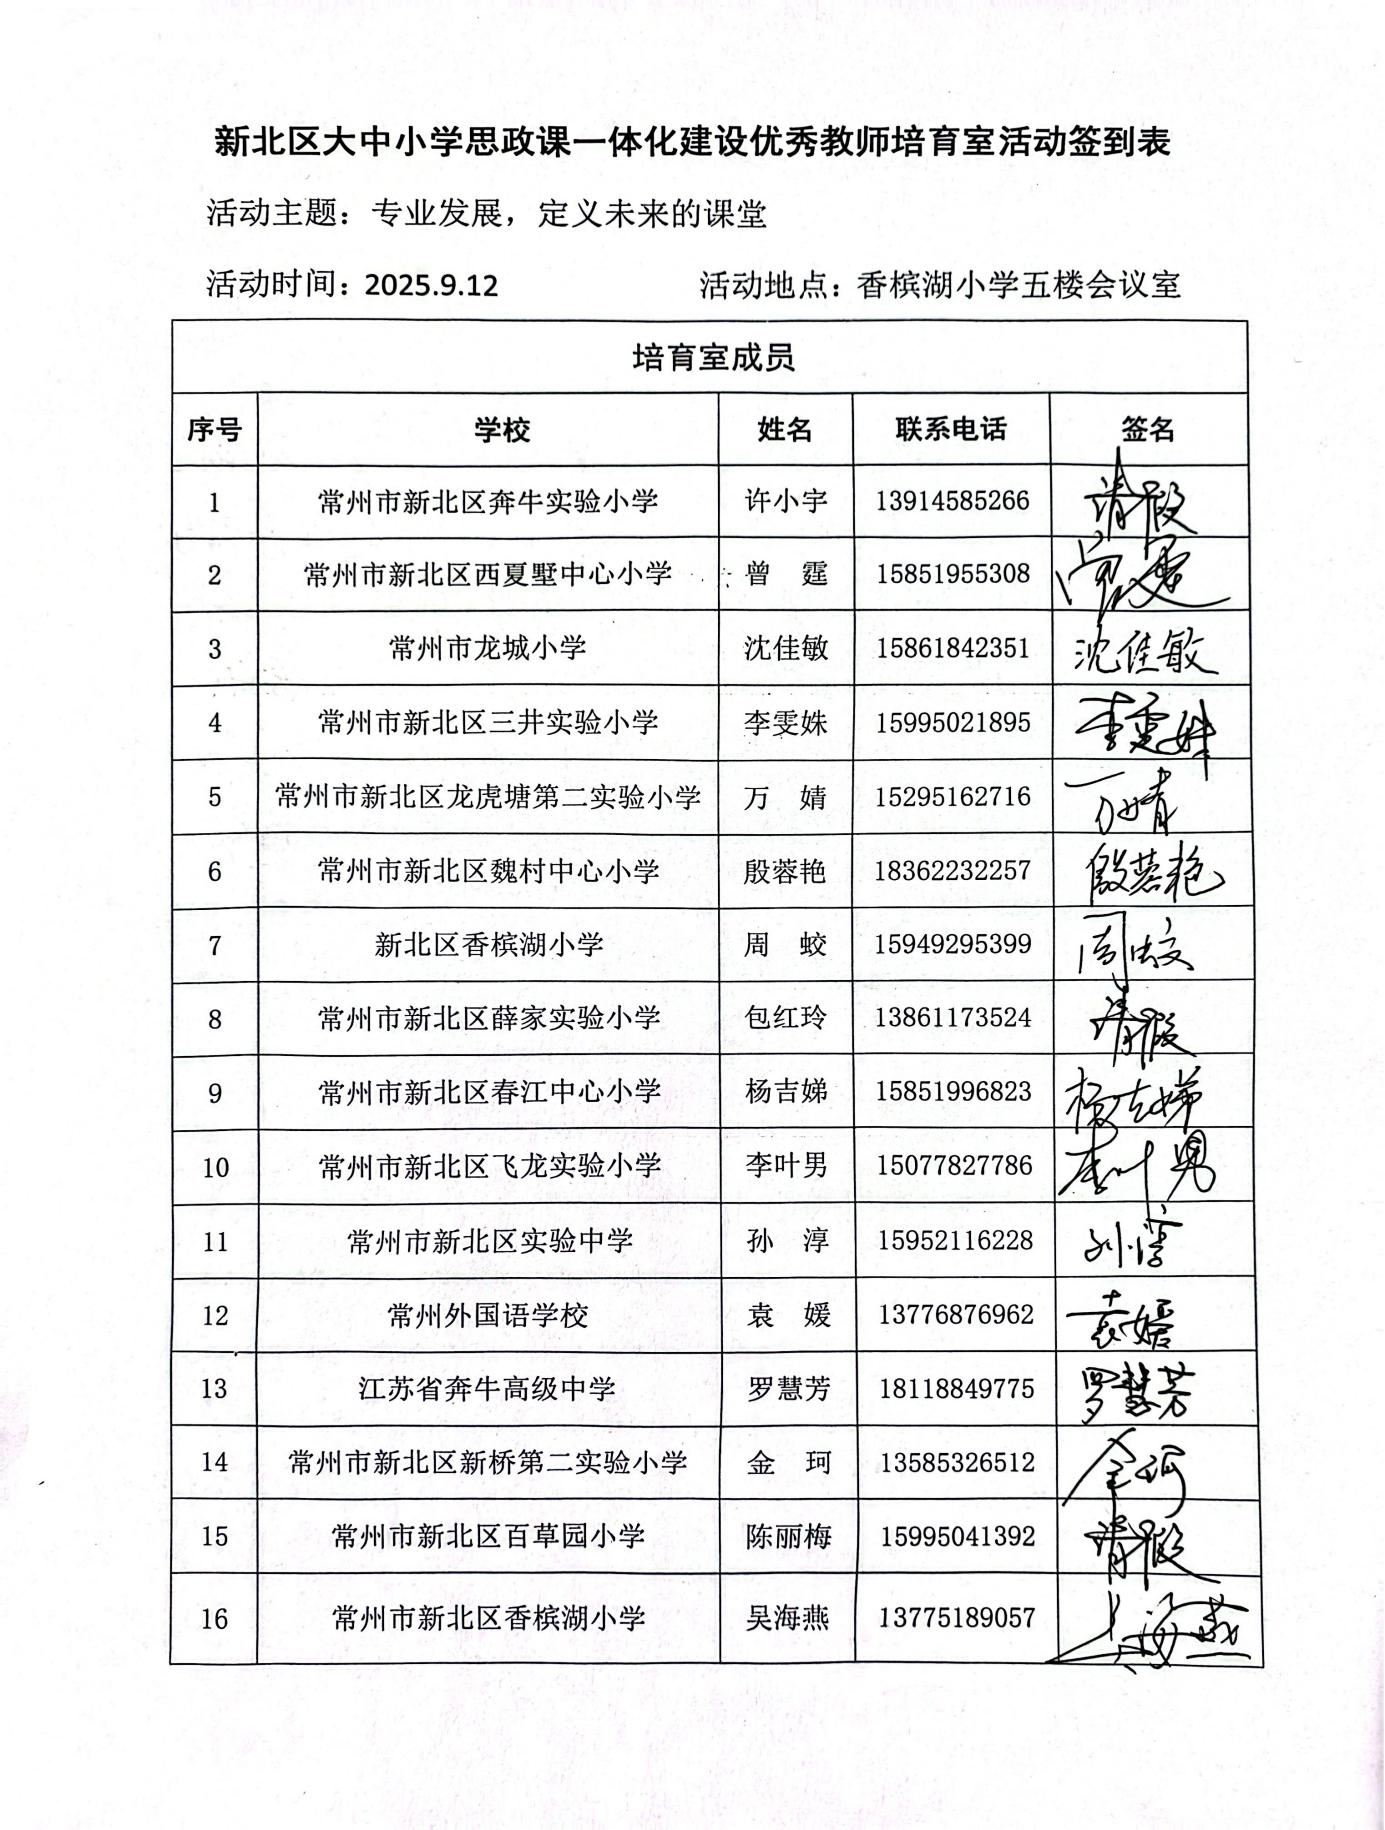 新北区大中小学思政课一体化建设优秀教师培育室活动签到表
活动主题：专业发展，定义未来的课堂
活动时间：2025.9.12 活动地点：香槟湖小学五楼会议室
培育室成员
序号 学校 姓名 联系电话 签名
1 常州市新北区奔牛实验小学 许小宇 13914585266 请假
2 常州市新北区西夏墅中心小学 曾 霆 15851955308 曾霆
3 常州市龙城小学 沈佳敏 15861842351 沈佳敏
4 常州市新北区三井实验小学 李雯姝 15995021895 李雯姝
5 常州市新北区龙虎塘第二实验小学 万 婧 15295162716 万婧
6 常州市新北区魏村中心小学 殷蓉艳 18362232257 殷蓉艳
7 新北区香槟湖小学 周 蛟 15949295399 周蛟
8 常州市新北区薛家实验小学 包红玲 13861173524 请假
9 常州市新北区春江中心小学 杨吉娣 15851996823 杨吉娣
10 常州市新北区飞龙实验小学 李叶男 15077827786 李叶男
11 常州市新北区实验中学 孙 淳 15952116228 孙淳
12 常州外国语学校 袁 媛 13776876962 袁媛
13 江苏省奔牛高级中学 罗慧芳 18118849775 罗慧芳
14 常州市新北区新桥第二实验小学 金 珂 13585326512 金珂
15 常州市新北区百草园小学 陈丽梅 15995041392 请假
16 常州市新北区香槟湖小学 吴海燕 13775189057 吴海燕